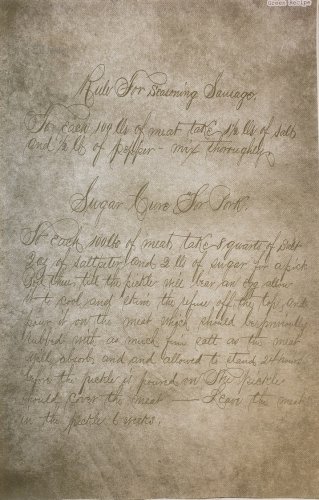 Green Recipe
Rule For Seasoning Sausage.
To each 100 lbs of meat take 1½ lbs of salt
and ½ lb of pepper - mix thoroughly
Sugar Cure For Pork.
To each 100 lbs of meat, take 8 quarts of Salt
2 oz of saltpeter and 2 lbs of sugar for a pick
till the pickle will bear an egg allow
it to cool and skim the refuse off the top, and
pour it on the meat which should be previously
rubbed with as much fine salt as the meat
will absorb and and allowed to stand 24 hours
before the pickle is poured on The pickle
should cover the meat — Leave the meat
in the pickle 6 weeks.